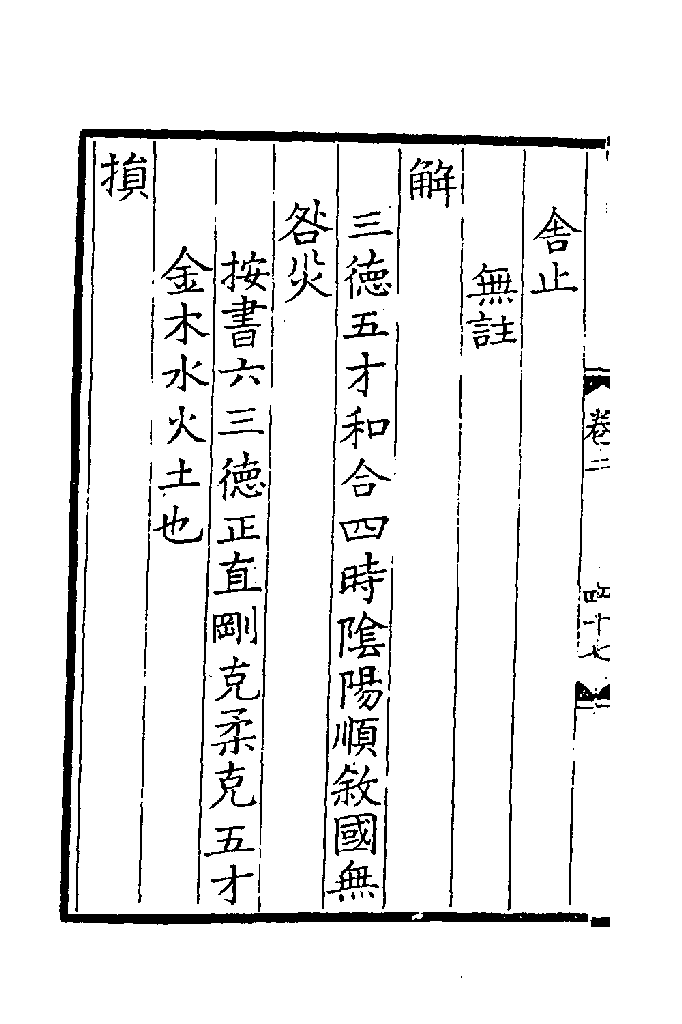 舎止
無註
解
三徳五才和合四時隂陽順敘國無
咎灾
按書六三徳正直剛克柔克五才
金木水火土也
損
卷二
四十七